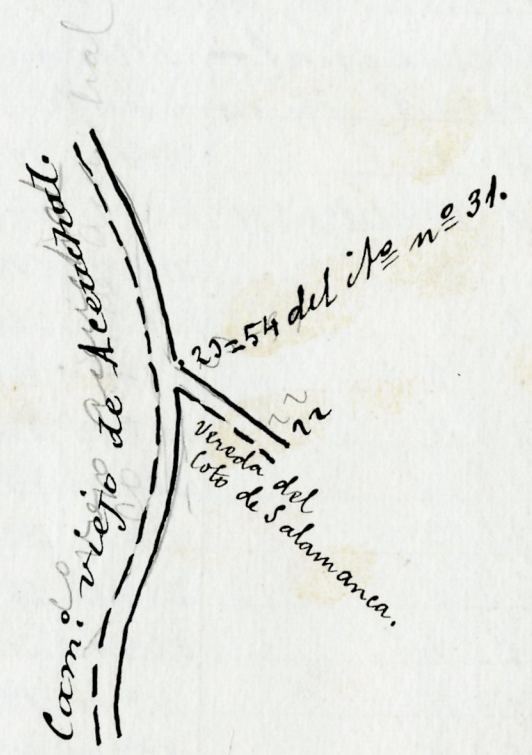 Cam.º viejo de Aceuchal.
23=54 del itº nº 31.
22
22
Vereda del
Coto de Salamanca.